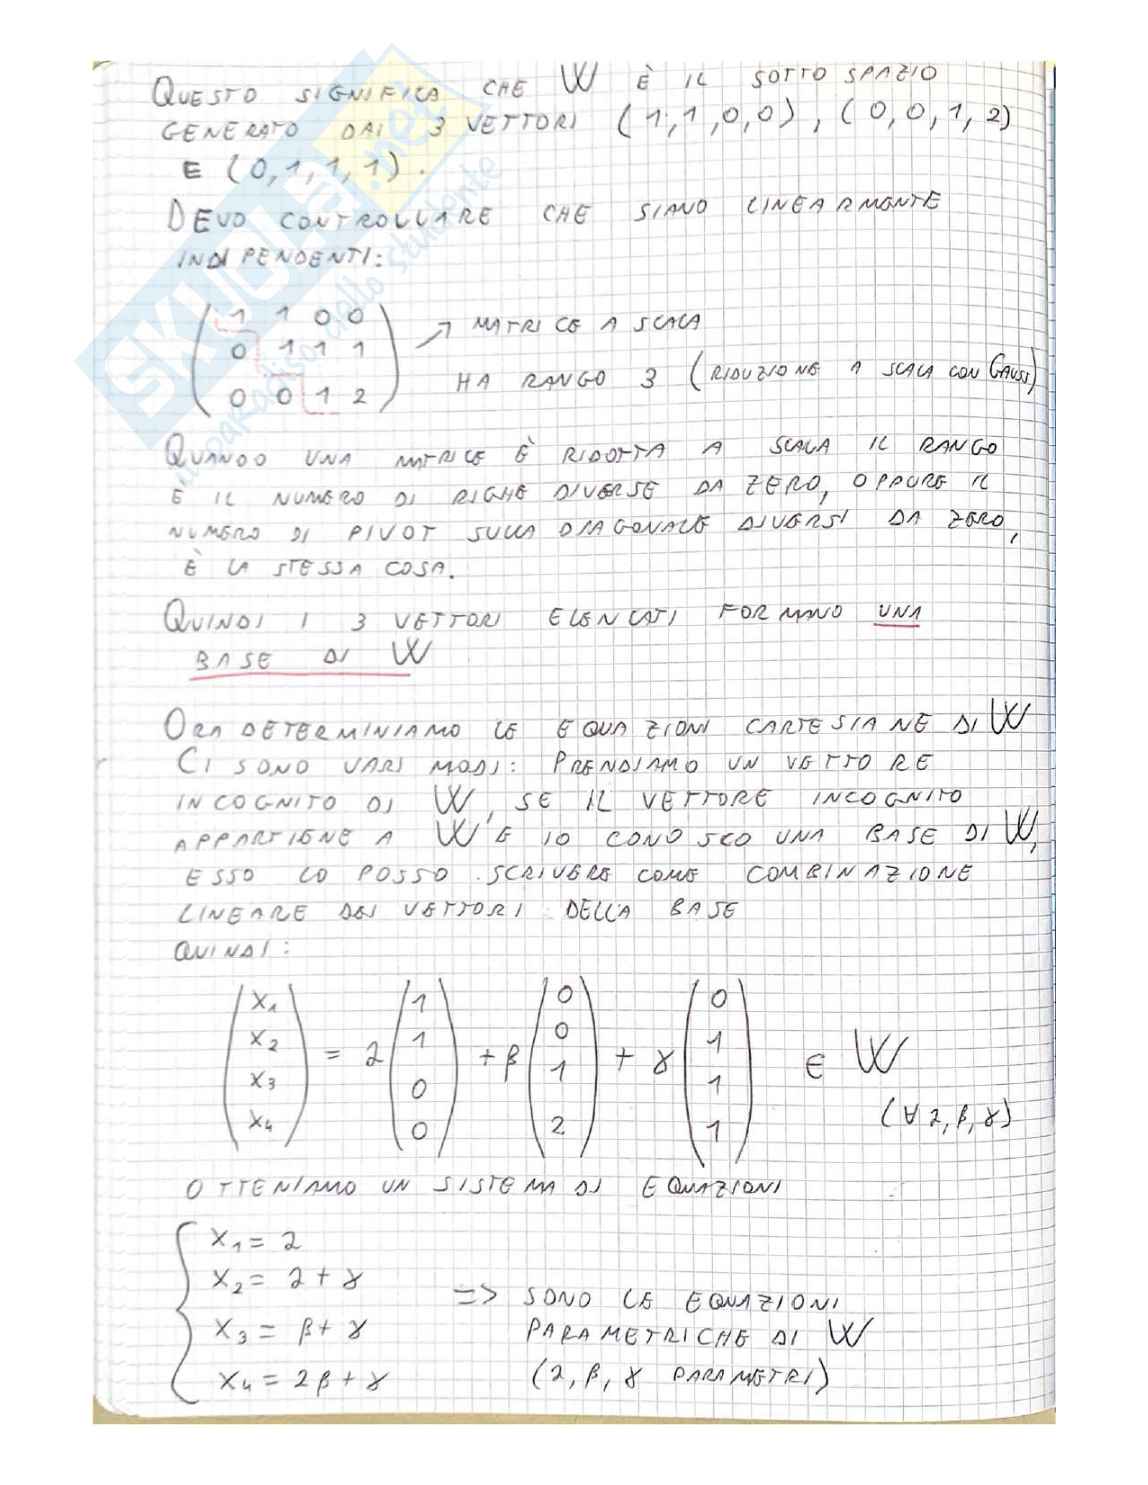 QUESTO SIGNIFICA CHE W È IL SOTTO SPAZIO
GENERATO DAI 3 VETTORI (1,1,0,0), (0,0,1,2)
E (0,1,1,1).
DEVO CONTROLLARE CHE SIANO LINEARMENTE
INDIPENDENTI:
1 1 0 0
0 1 1 1
0 0 1 2
→ MATRICE A SCALA
HA RANGO 3 (RIDUZIONE A SCALA CON GAUSS)
QUANDO UNA MATRICE È RIDOTTA A SCALA IL RANGO
È IL NUMERO DI RIGHE DIVERSE DA ZERO, OPPURE IL
NUMERO DI PIVOT SULLA DIAGONALE DIVERSI DA ZERO,
È LA STESSA COSA.
QUINDI I 3 VETTORI ELENCATI FORMANO UNA
BASE DI W
ORA DETERMINIAMO LE EQUAZIONI CARTESIANE DI W
CI SONO VARI MODI: PRENDIAMO UN VETTORE
INCOGNITO DI W, SE IL VETTORE INCOGNITO
APPARTIENE A W E IO CONOSCO UNA BASE DI W,
ESSO LO POSSO SCRIVERE COME COMBINAZIONE
LINEARE DEI VETTORI DELLA BASE
QUINDI:
(x₁ x₂ x₃ x₄) = α (1 1 0 0) + β (0 0 1 2) + γ (0 1 1 1) ∈ W
(∀ α, β, γ)
OTTENIAMO UN SISTEMA DI EQUAZIONI
x₁ = α
x₂ = α + γ
x₃ = β + γ
x₄ = 2β + γ
=> SONO LE EQUAZIONI
PARAMETRICHE DI W
(α, β, γ PARAMETRI)
SKUOLA.net
il paradiso dello studente